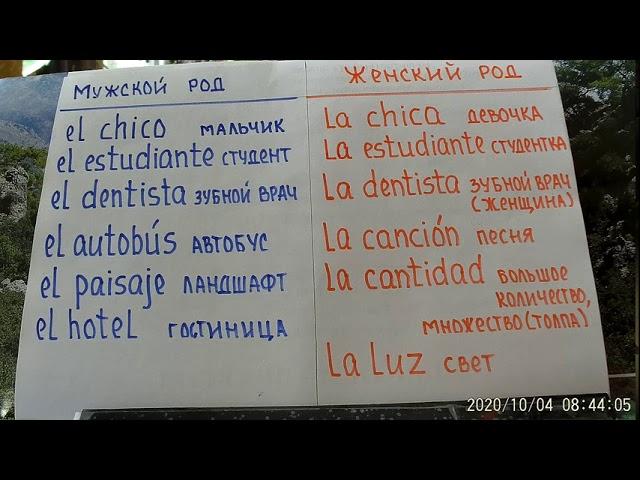 Мужской род
el chico мальчик
el estudiante студент
el dentista зубной врач
el autobús автобус
el paisaje ландшафт
el hotel гостиница
Женский род
La chica девочка
La estudiante студентка
La dentista зубной врач
(женщина)
La canción песня
La cantidad большое
количество,
множество (толпа)
La Luz свет
2020/10/04 08:44:05